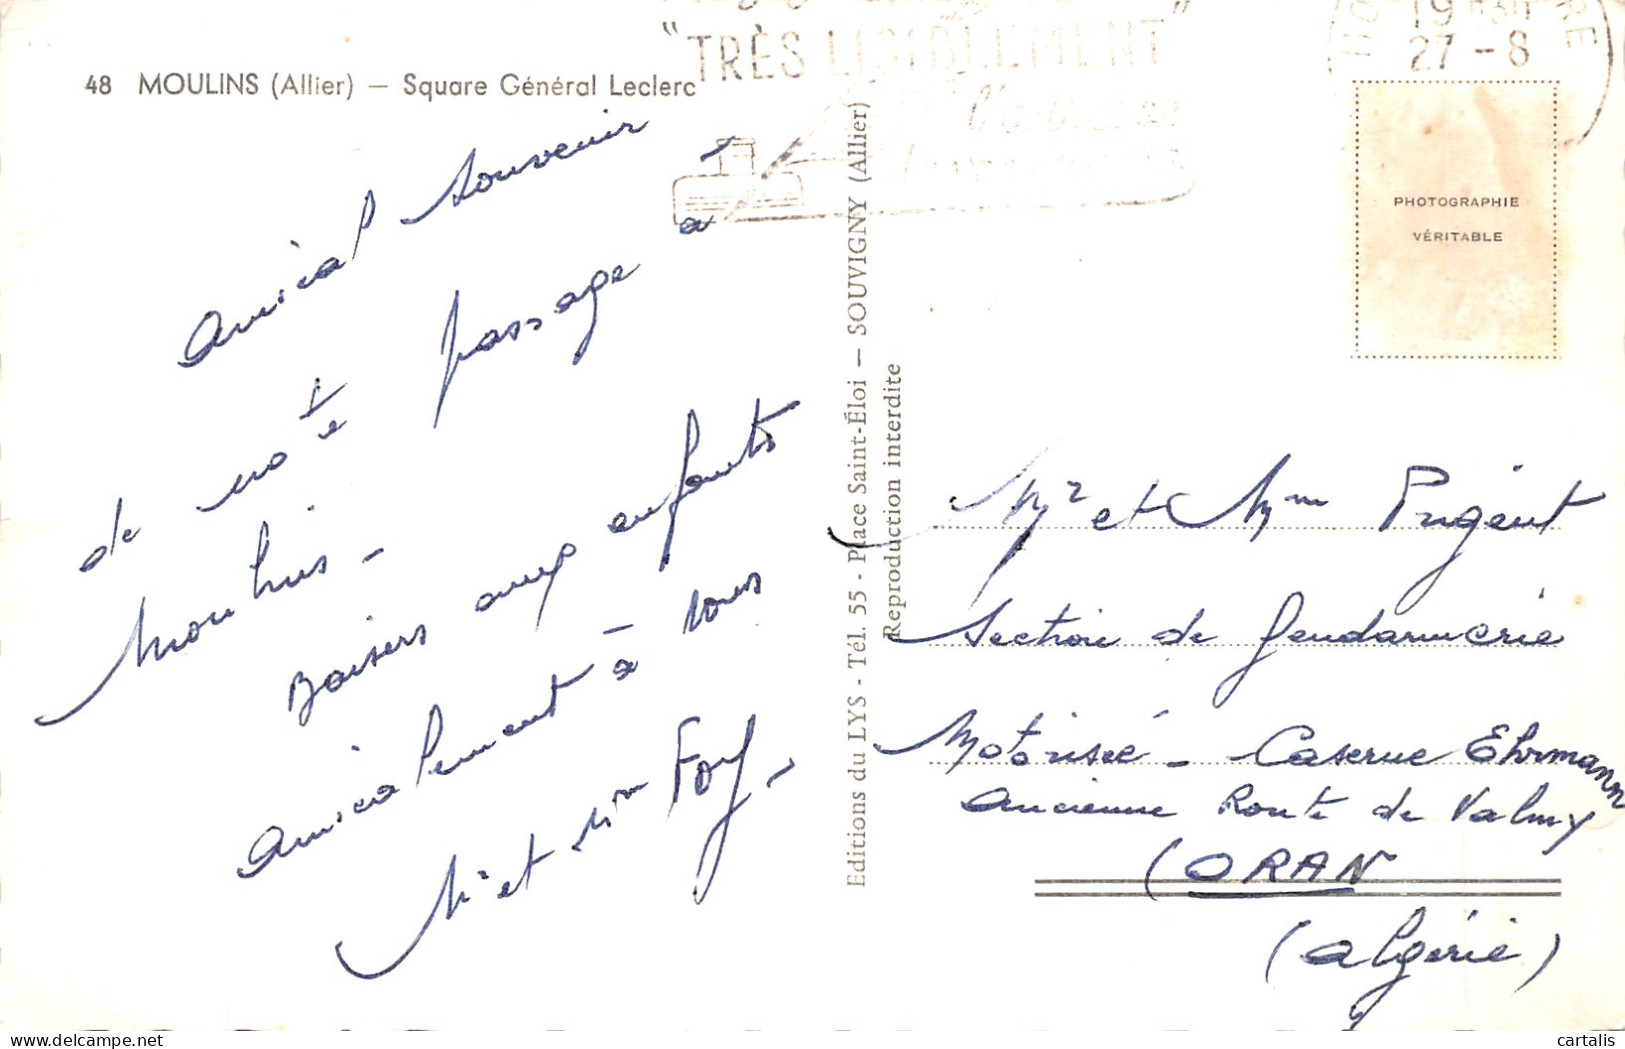 48 MOULINS (Allier) — Square Général Leclerc
"TRÈS LISIBLEMENT"
l'adresse
19 H30
27 - 8
PHOTOGRAPHIE
VÉRITABLE
Amical souvenir
de notre passage à
Moulins -
Baisers aux enfants
Amicalement à vous
Mr et Mm Foy -
Editions du LYS - Tél. 55 - Place Saint-Éloi — SOUVIGNY (Allier)
Reproduction interdite
Mr et Mm Prigent
Section de Gendarmerie
Motorisée - Caserne Ehrmann
Ancienne Route de Valmy
(ORAN
(Algérie)
cartalis